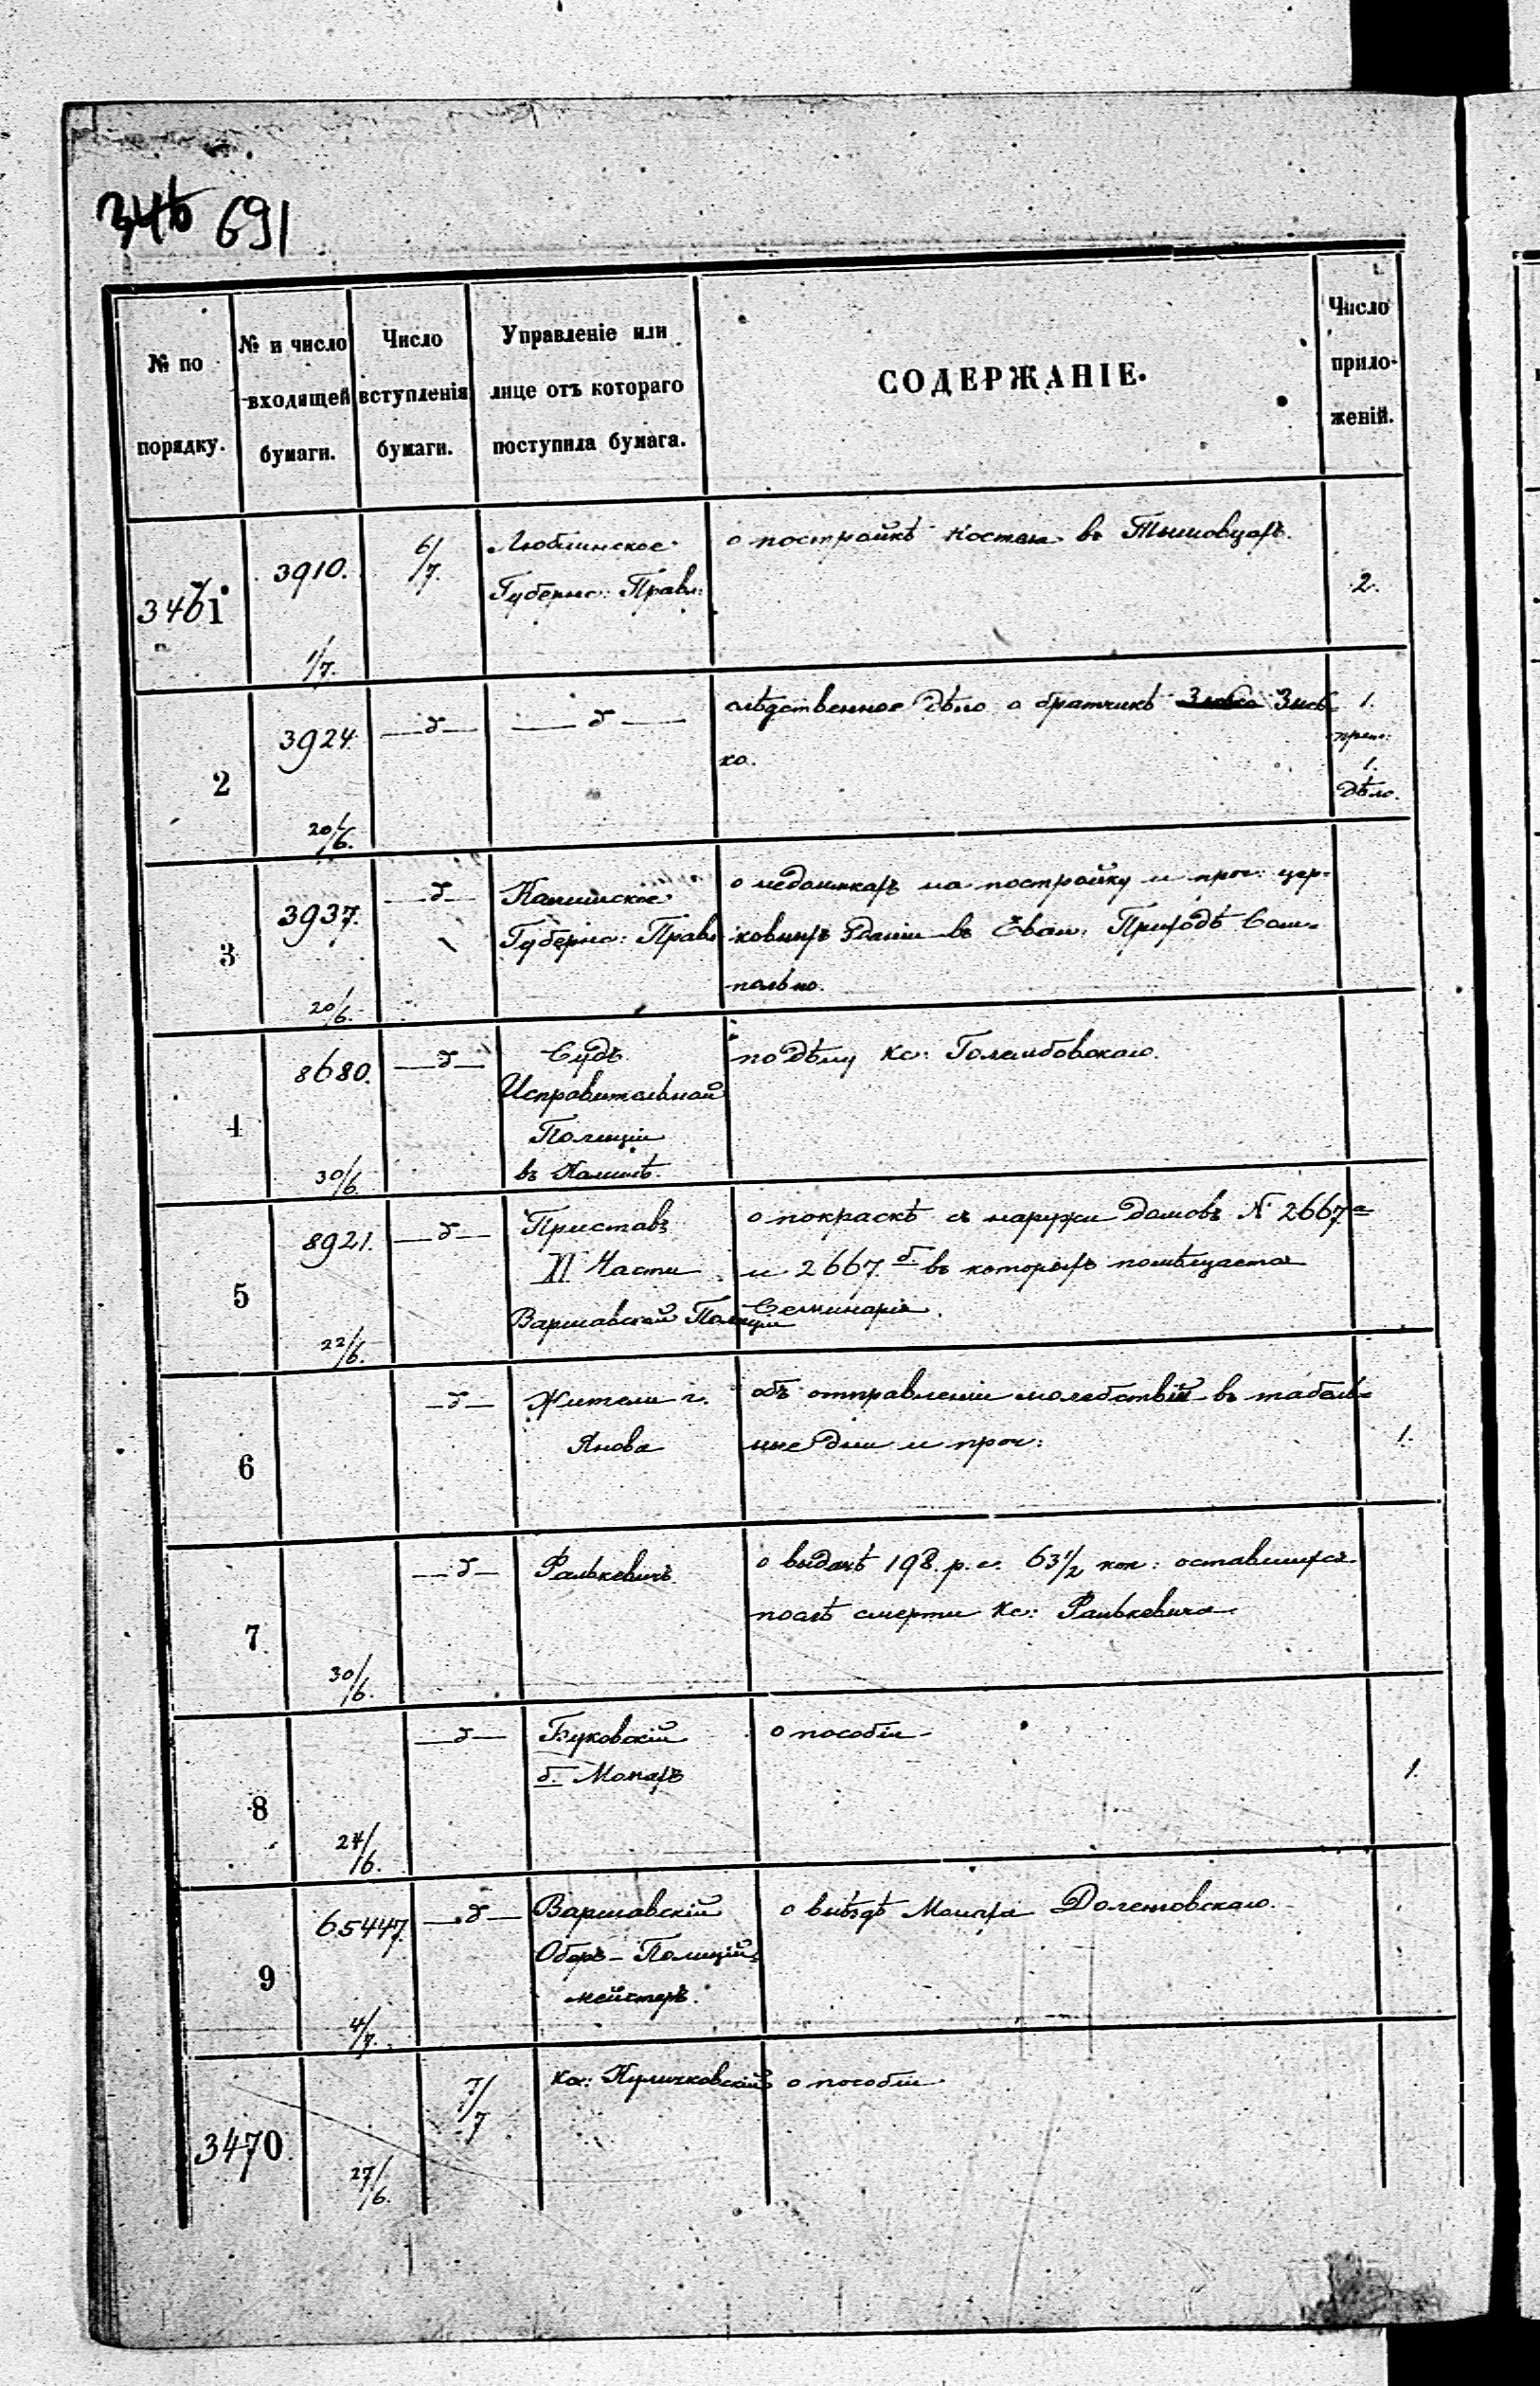 346 691
№ по
порядку.
№ и число
входящей
бумаги.
Число
вступленія
бумаги.
Управленіе или
лице отъ котораго
поступила бумага.
СОДЕРЖАНІЕ.
Число
прило-
женій.
3461
3910.
1/7.
6/7.
Люблинское
Губернс: Правл:
о постройкѣ костела въ Тышовцахъ.
2.
2
3924.
20/6.
—σ—
—σ—
слѣдственное дѣло о братчикѣ
ко.
1.
1.
дѣло.
3
3937.
20/6.
—σ—
Калишское
Губернс: Правл
о недоимкахъ на постройку и проч: цер-
ковныхъ зданій въ Еван: Приходѣ Сом-
польно.
4
8680.
30/6.
—σ—
Судъ
Исправительной
Полиціи
въ Калишѣ.
по дѣлу Кс: Голембовскаго.
5
8921.
22/6.
—σ—
Приставъ
Части
Варшавской Полиціи
о покраскѣ съ наружи домовъ № 2667а
и 2667.б. въ которыхъ помѣщается
Семинарія.
6
—σ—
Жители г.
Янова
объ отправленіи молебствій въ табель-
ные дни и проч:
1.
7.
30/6.
—σ—
Фалькевичъ
о выдачѣ 198. р. с. 63 1/2 коп: оставшихся
послѣ смерти Кс: Фалькевича
8
24/6.
—σ—
Буковскій
б. Монахъ
о пособіи
1.
9
65447.
4/7.
—σ—
Варшавскій
Оберъ-Полицій-
мейстеръ.
о выѣздѣ Монаха
3470.
27/6.
7/7
Кс: Куличковскій
о пособіи